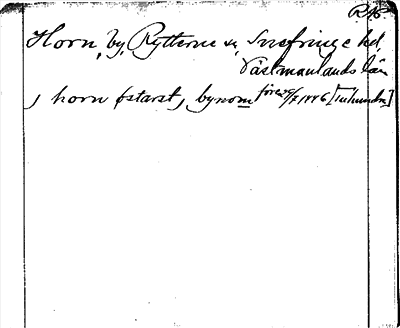 RA.
Horn, by, Rytterne sn, Snefringe hd,
Västmanlands län
, horn östarst, by nom före 29/7 1446 [Tuhundra]